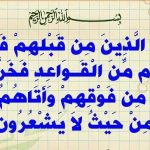 بِسْمِ اللَّهِ الرَّحْمَٰنِ الرَّحِيمِ
الَّذِينَ مِن قَبْلِهِمْ فَ
م مِّنَ الْقَوَاعِدِ فَخَرَّ
مِن فَوْقِهِمْ وَأَتَاهُمُ
مِنْ حَيْثُ لَا يَشْعُرُونَ